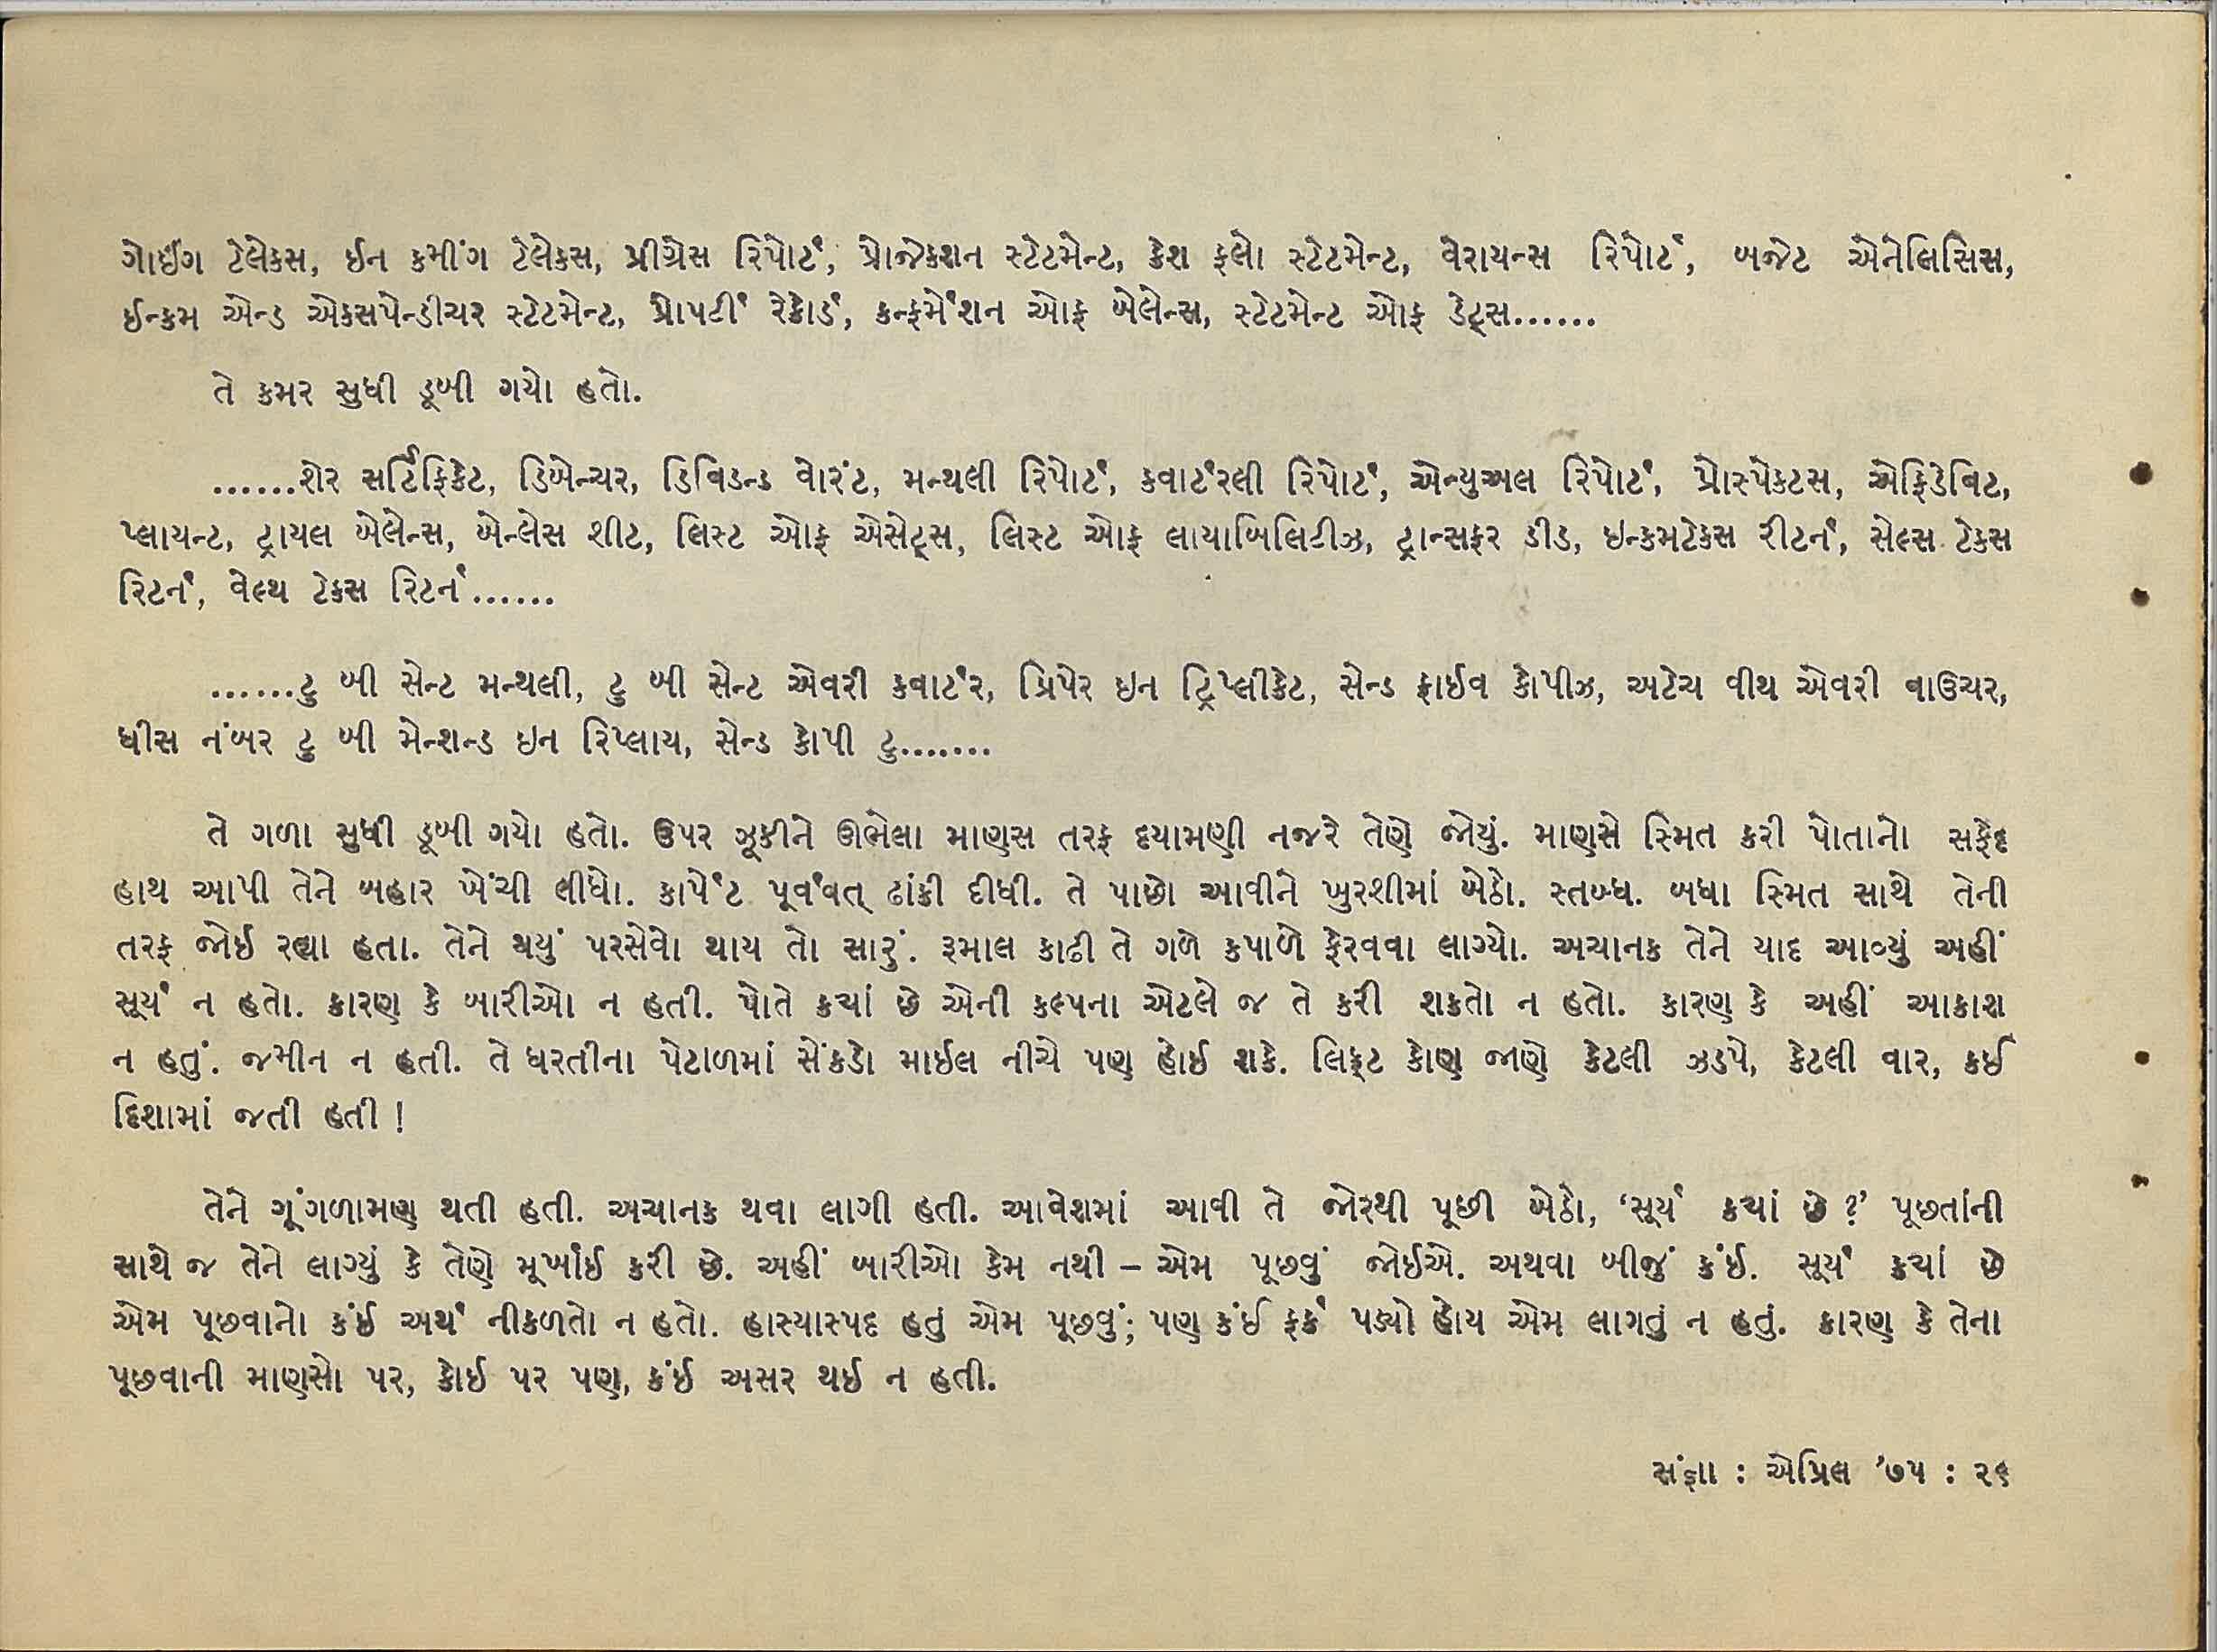 ગોઈંગ ટેલેક્સ, ઈન કમીંગ ટેલેક્સ, પ્રીગ્રેસ રિપોર્ટ, પ્રોજેક્શન સ્ટેટમેન્ટ, કેશ ફ્લો સ્ટેટમેન્ટ, વેરાયન્સ રિપોર્ટ, બજેટ એનેલિસિસ,
ઈન્કમ એન્ડ એક્સપેન્ડીચર સ્ટેટમેન્ટ, પ્રોપર્ટી રેકોર્ડ, કન્ફર્મેશન ઓફ બેલેન્સ, સ્ટેટમેન્ટ ઓફ ડેટ્સ......
તે કમર સુધી ડૂબી ગયો હતો.
......શેર સર્ટિફિકેટ, ડિબેન્ચર, ડિવિડન્ડ વોરંટ, મન્થલી રિપોર્ટ, ક્વાર્ટરલી રિપોર્ટ, એન્યુઅલ રિપોર્ટ, પ્રોસ્પેક્ટસ, એફિડેવિટ,
પ્લાયન્ટ, ટ્રાયલ બેલેન્સ, બેન્લેસ શીટ, લિસ્ટ ઓફ એસેટ્સ, લિસ્ટ ઓફ લાયાબિલિટીઝ, ટ્રાન્સફર ડીડ, ઇન્કમટેક્સ રીટર્ન, સેલ્સ ટેક્સ
રિટર્ન, વેલ્થ ટેક્સ રિટર્ન......
......ટુ બી સેન્ટ મન્થલી, ટુ બી સેન્ટ એવરી ક્વાર્ટર, પ્રિપેર ઇન ટ્રિપ્લીકેટ, સેન્ડ ફાઈવ કોપીઝ, અટેચ વીથ એવરી વાઉચર,
ધીસ નંબર ટુ બી મેન્શન્ડ ઇન રિપ્લાય, સેન્ડ કોપી ટુ.......
તે ગળા સુધી ડૂબી ગયો હતો. ઉપર ઝૂકીને ઊભેલા માણસ તરફ દયામણી નજરે તેણે જોયું. માણસે સ્મિત કરી પોતાનો સફેદ
હાથ આપી તેને બહાર ખેંચી લીધો. કાર્પેટ પૂર્વવત્ ઢાંકી દીધી. તે પાછો આવીને ખુરશીમાં બેઠો. સ્તબ્ધ. બધા સ્મિત સાથે તેની
તરફ જોઈ રહ્યા હતા. તેને થયું પરસેવો થાય તો સારું. રૂમાલ કાઢી તે ગળે કપાળે ફેરવવા લાગ્યો. અચાનક તેને યાદ આવ્યું અહીં
સૂર્ય ન હતો. કારણ કે બારીઓ ન હતી. પોતે ક્યાં છે એની કલ્પના એટલે જ તે કરી શકતો ન હતો. કારણ કે અહીં આકાશ
ન હતું. જમીન ન હતી. તે ધરતીના પેટાળમાં સેંકડો માઈલ નીચે પણ હોઈ શકે. લિફ્ટ કોણ જાણે કેટલી ઝડપે, કેટલી વાર, કઈ
દિશામાં જતી હતી !
તેને ગૂંગળામણ થતી હતી. અચાનક થવા લાગી હતી. આવેશમાં આવી તે જોરથી પૂછી બેઠો, ‘સૂર્ય ક્યાં છે ?’ પૂછતાંની
સાથે જ તેને લાગ્યું કે તેણે મૂર્ખાઈ કરી છે. અહીં બારીઓ કેમ નથી – એમ પૂછવું જોઈએ. અથવા બીજું કંઈ. સૂર્ય ક્યાં છે
એમ પૂછવાનો કંઈ અર્થ નીકળતો ન હતો. હાસ્યાસ્પદ હતું એમ પૂછવું; પણ કંઈ ફર્ક પડ્યો હોય એમ લાગતું ન હતું. કારણ કે તેના
પૂછવાની માણસો પર, કોઈ પર પણ, કંઈ અસર થઈ ન હતી.
સંજ્ઞા : એપ્રિલ ’૭૫ : ૨૯